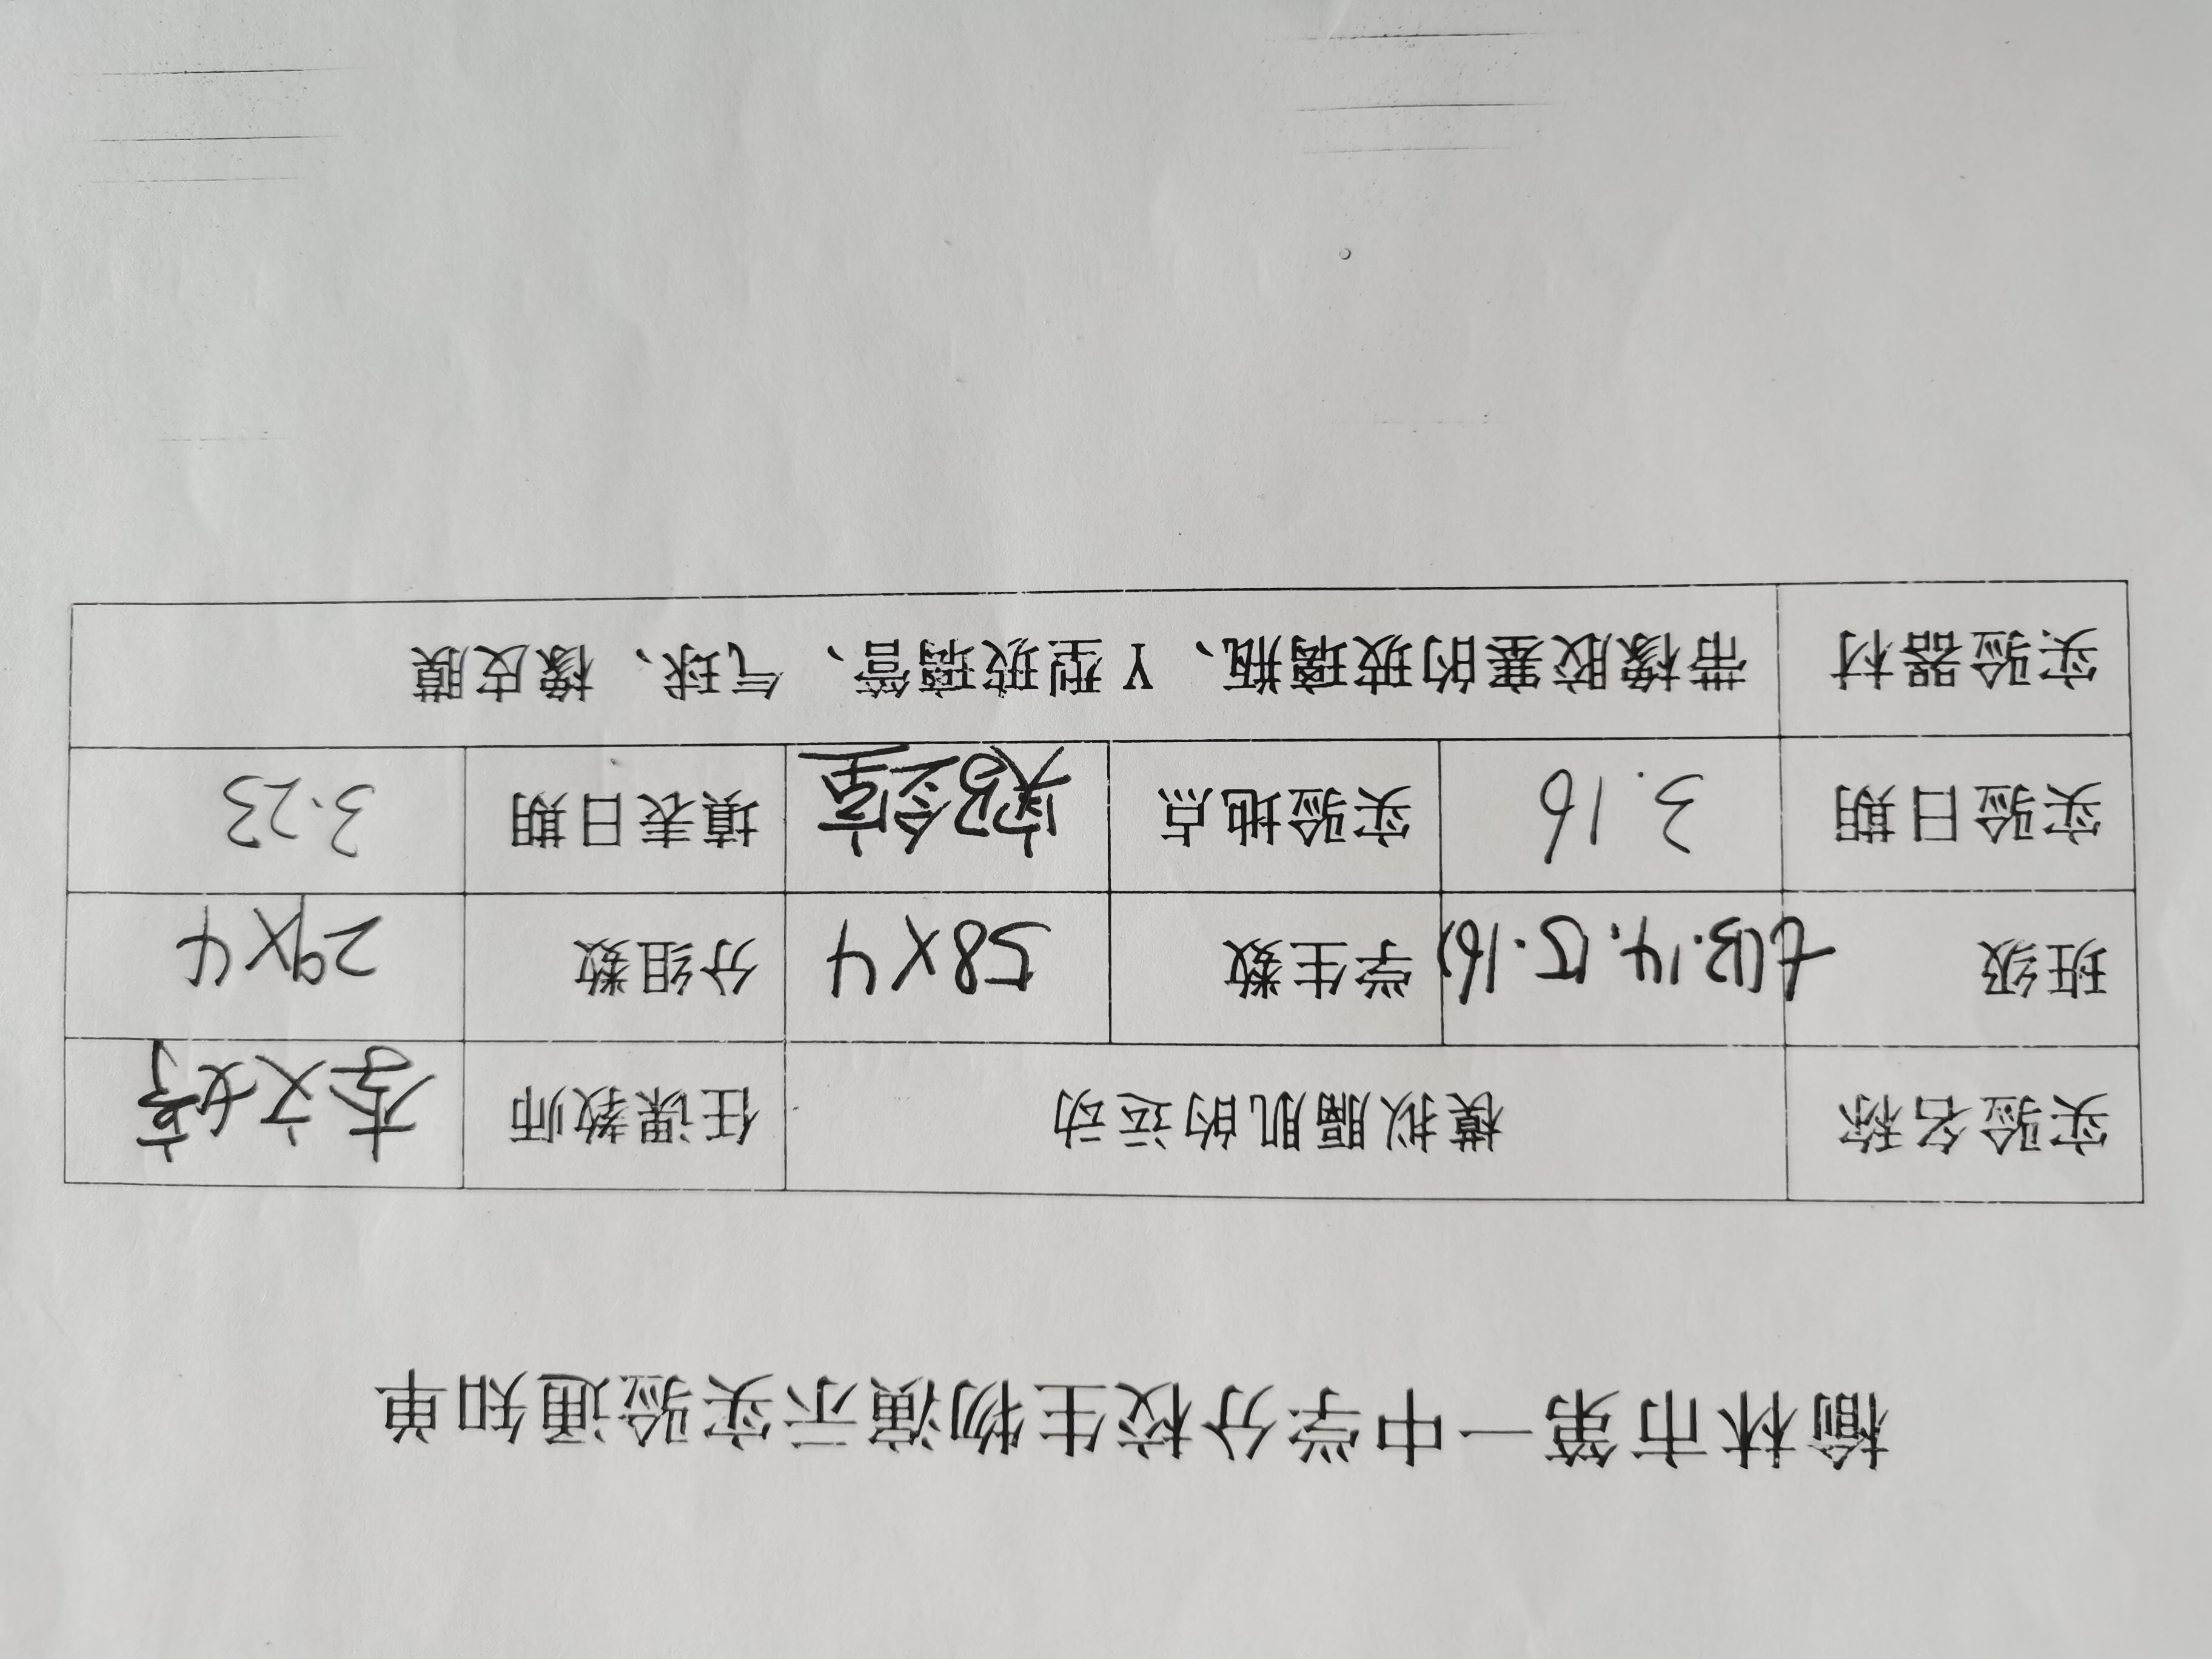 榆林市第一中学分校生物演示实验通知单
实验名称 模拟膈肌的运动 任课教师 李文婷
班级 七(13.14.15.16) 学生数 58×4 分组数 29×4
实验日期 3.16 实验地点 实验室 填表日期 3.23
实验器材 带橡胶塞的玻璃瓶、Y型玻璃管、气球、橡皮膜